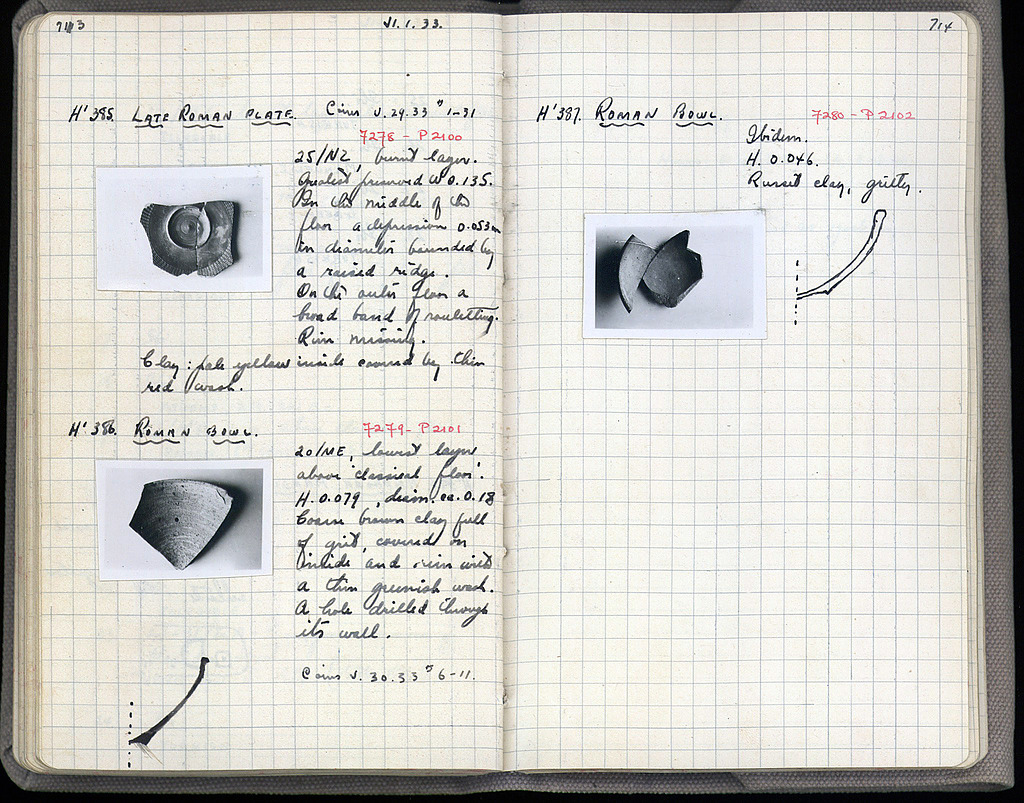 713
VI.1.33.
H' 385. LATE ROMAN PLATE. Coins V.29.33 #1-31
7278 - P 2100
25/ΝΖ, burnt layer.
Greatest preserved W 0.135.
In the middle of the
floor a depression 0.053m
in diameter bounded by
a raised ridge.
On the outer floor a
broad band of rouletting.
Rim missing.
Clay: pale yellow inside covered by thin
red wash.
H' 386. ROMAN BOWL.
7279 - P 2101
20/ΜΕ, lowest layer
above 'classical floor'.
H. 0.079, diam. ca. 0.18
Coarse brown clay full
of grit, covered on
inside and rim with
a thin greenish wash.
A hole drilled through
its wall.
Coins V. 30.33 #6-11.
714
H' 387. ROMAN BOWL.
7280 - P 2102
Ibidem.
H. 0.046.
Russet clay, gritty.